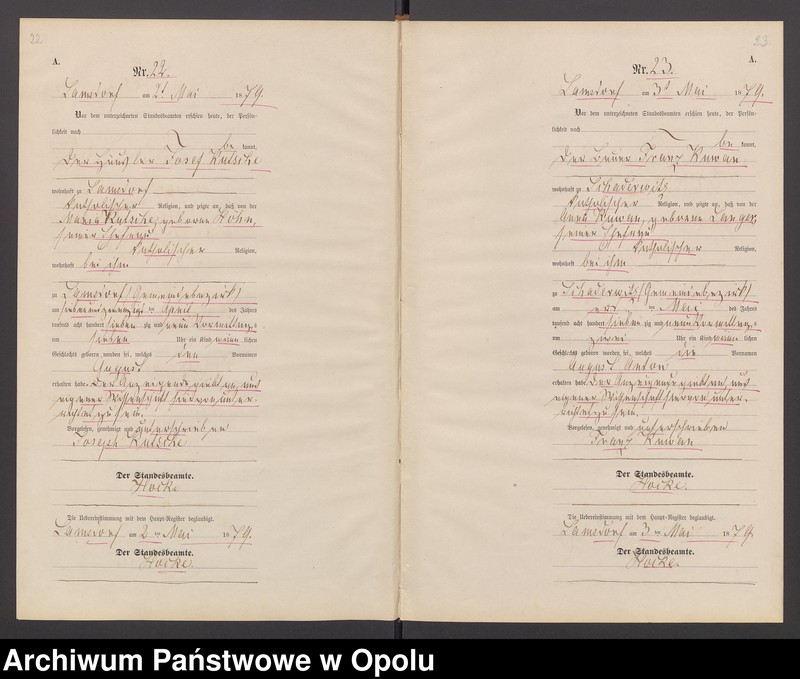 22
A.
Nr. 22.
Lamsdorf am 2t Mai 1879.
Vor dem unterzeichneten Standesbeamten erschien heute, der Persön-
lichkeit nach
be kannt,
der Häusler Josef Kutsche
wohnhaft zu Lamsdorf
katholischer Religion, und zeigte an, daß von der
Maria Kutsche, geborene Hohn,
seiner Ehefrau
katholischer Religion,
wohnhaft bei ihm
zu Lamsdorf Gemeindebezirk
am siebenundzwanzigsten April des Jahres
tausend acht hundert sieben zig und neun Vormittags
um sieben Uhr ein Kind männ lichen
Geschlechts geboren worden sei, welches den Vornamen
August
erhalten habe. Der Anzeigende giebt an, aus
eigener Wissenschaft hiervon unter-
richtet zu sein.
Vorgelesen, genehmigt und unterschrieben
Joseph Kutsche
Der Standesbeamte.
Hocke
Die Uebereinstimmung mit dem Haupt-Register beglaubigt.
Lamsdorf am 2 ten Mai 1879.
Der Standesbeamte.
Hocke.
23
A.
Nr. 23.
Lamsdorf am 3t Mai 1879.
Vor dem unterzeichneten Standesbeamten erschien heute, der Persön-
lichkeit nach
be kannt,
der Bauer Franz
wohnhaft zu Schaderwitz
katholischer Religion, und zeigte an, daß von der
Anna geborene Langer
seiner Ehefrau
katholischer Religion,
wohnhaft bei ihm
zu Schaderwitz Gemeindebezirk
am ersten Mai des Jahres
tausend acht hundert sieben zig und neun Vormittags
um zwei Uhr ein Kind männ lichen
Geschlechts geboren worden sei, welches die Vornamen
August Anton
erhalten habe. Der Anzeigende giebt an, aus
eigener Wissenschaft hiervon unter-
richtet zu sein.
Vorgelesen, genehmigt und unterschrieben
Franz
Der Standesbeamte.
Hocke.
Die Uebereinstimmung mit dem Haupt-Register beglaubigt.
Lamsdorf am 3 ten Mai 1879.
Der Standesbeamte.
Hocke.
Archiwum Państwowe w Opolu